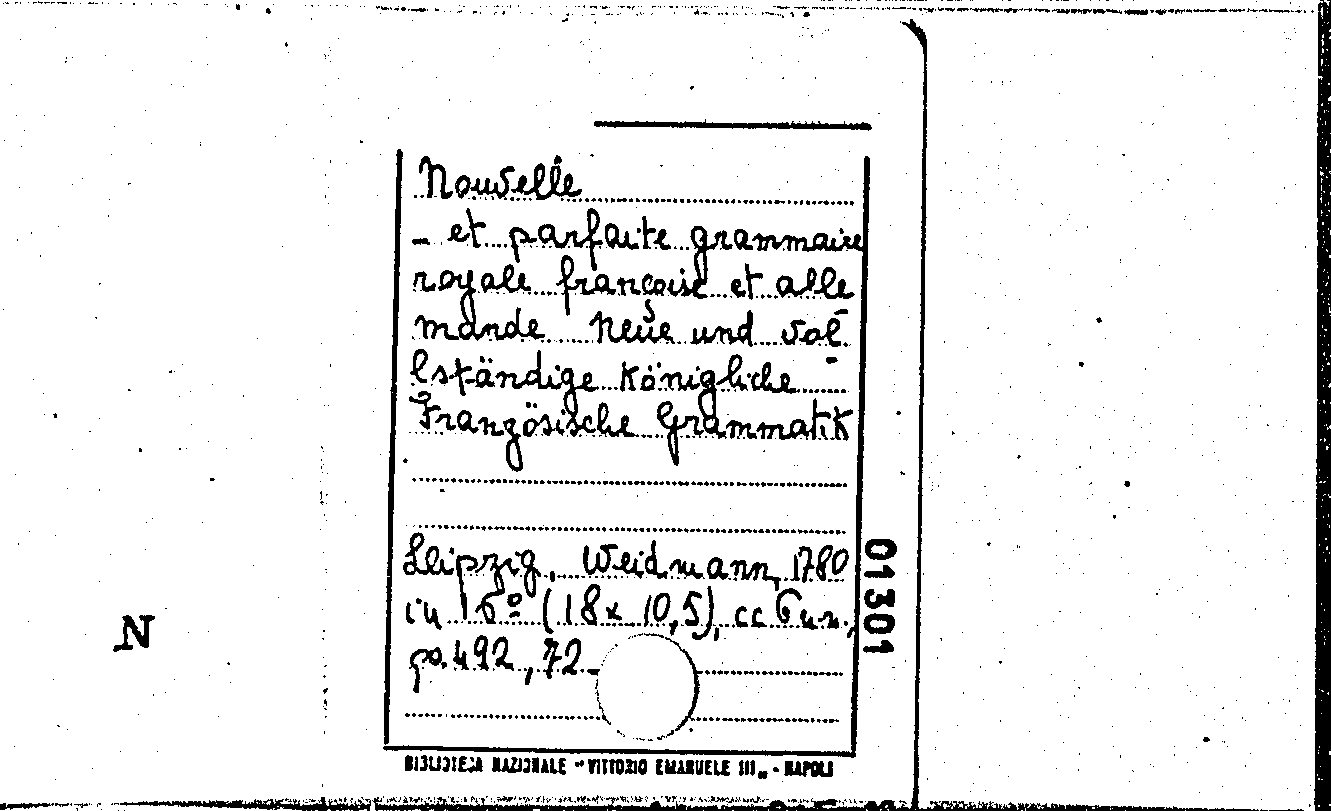 Nouvelle
- et parfaite grammaire
royale françoise et alle
mande Neue und vol-
lständige Königliche
Französische Grammatik
Leipzig, Weidmann, 1780
in 16º (18x 10,5), cc 6 n.n.,
pp. 492, 72
01301
N
BIBLIOTECA NAZIONALE "VITTORIO EMANUELE III„ - NAPOLI